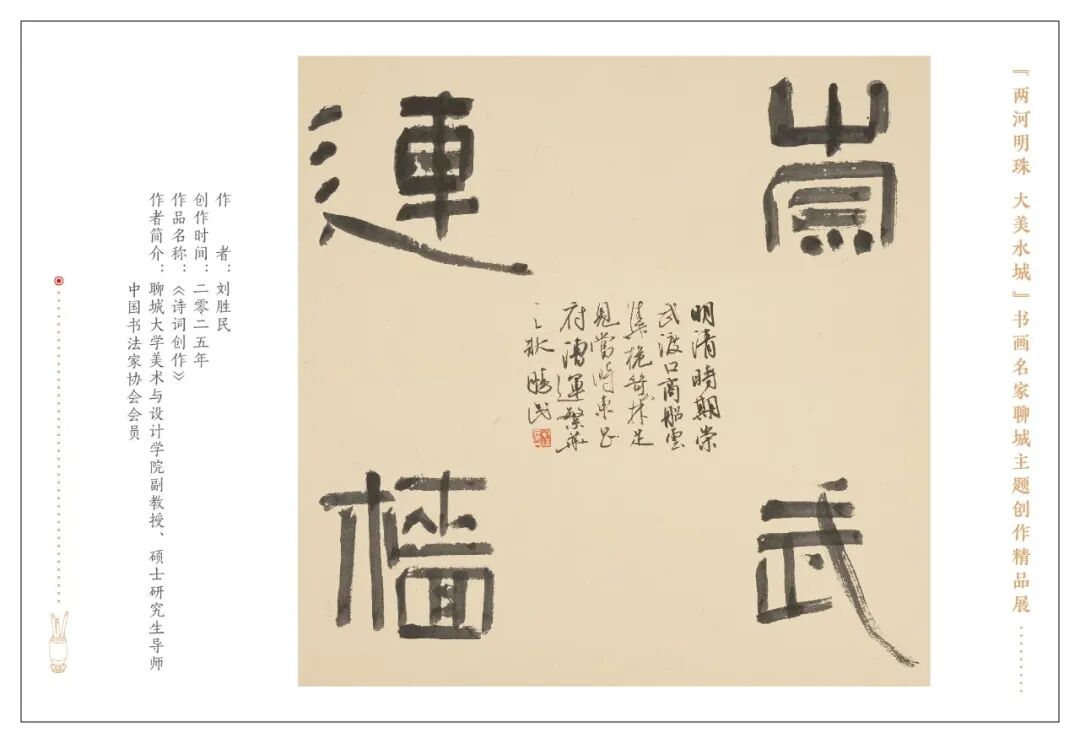 『两河明珠 大美水城』书画名家聊城主题创作精品展
崇武
連檣
明清時期崇
武渡口商船雲
集桅檣林足
見當時東昌
府漕運繁華
之狀 勝民
作者：刘胜民
创作时间：二零二五年
作品名称：《诗词创作》
作者简介：聊城大学美术与设计学院副教授、硕士研究生导师
中国书法家协会会员